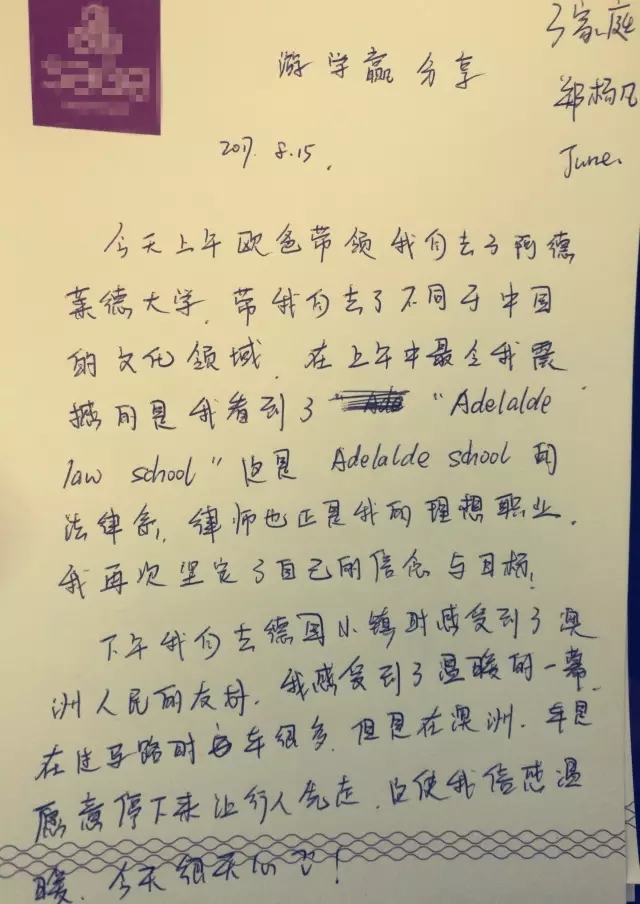 游学赢分享
3家庭
郑杨凡
June.
2017.8.15.
今天上午欧爸带领我们去了阿德
莱德大学,带我们去了不同于中国
的文化领域.在上午中最令我震
撼的是我看到了 "Adelalde
law school"这是 Adelalde school 的
法律系,律师也正是我的理想职业.
我再次坚定了自己的信念与目标!
下午我们去德国小镇时感受到了澳
洲人民的友好.我感受到了温暖的一幕,
在过马路时 车很多,但是在澳洲.车是
愿意停下来让行人先走,这使我倍感温
暖.今天很开心!